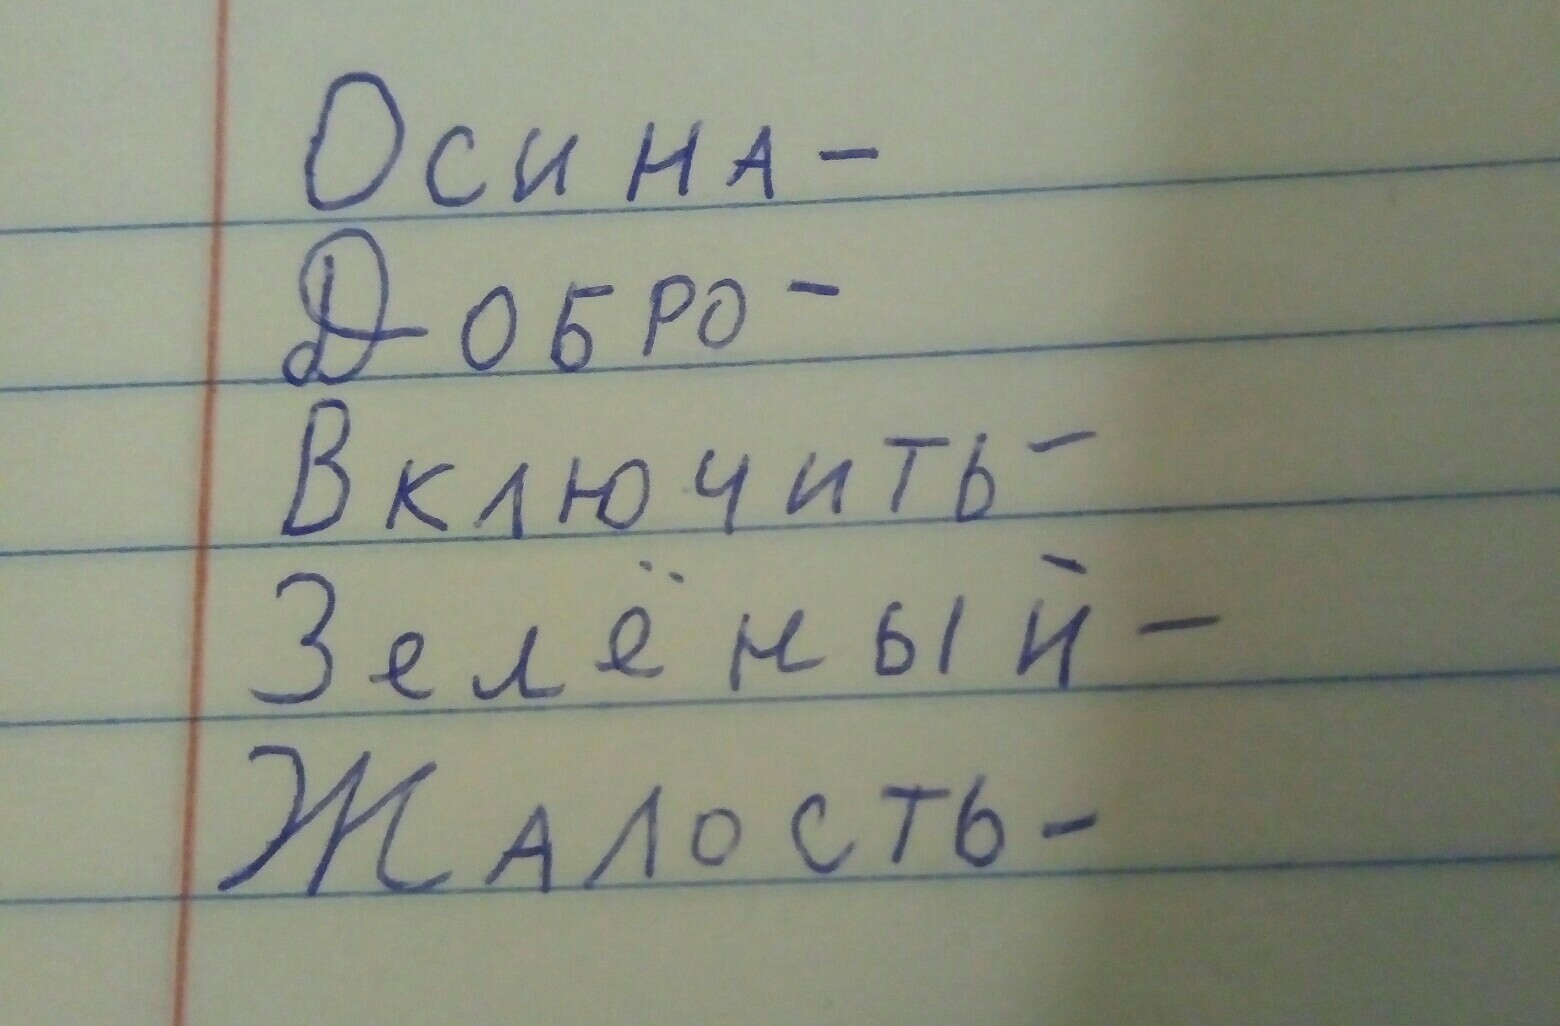 Осина-
Добро-
Включить-
Зелёный-
Жалость-